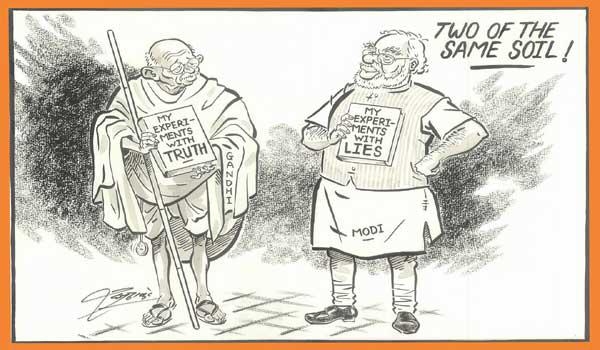 TWO OF THE
SAME SOIL!
MY
EXPERI-
MENTS
WITH
TRUTH
GANDHI
MY
EXPERI-
MENTS
WITH
LIES
MODI